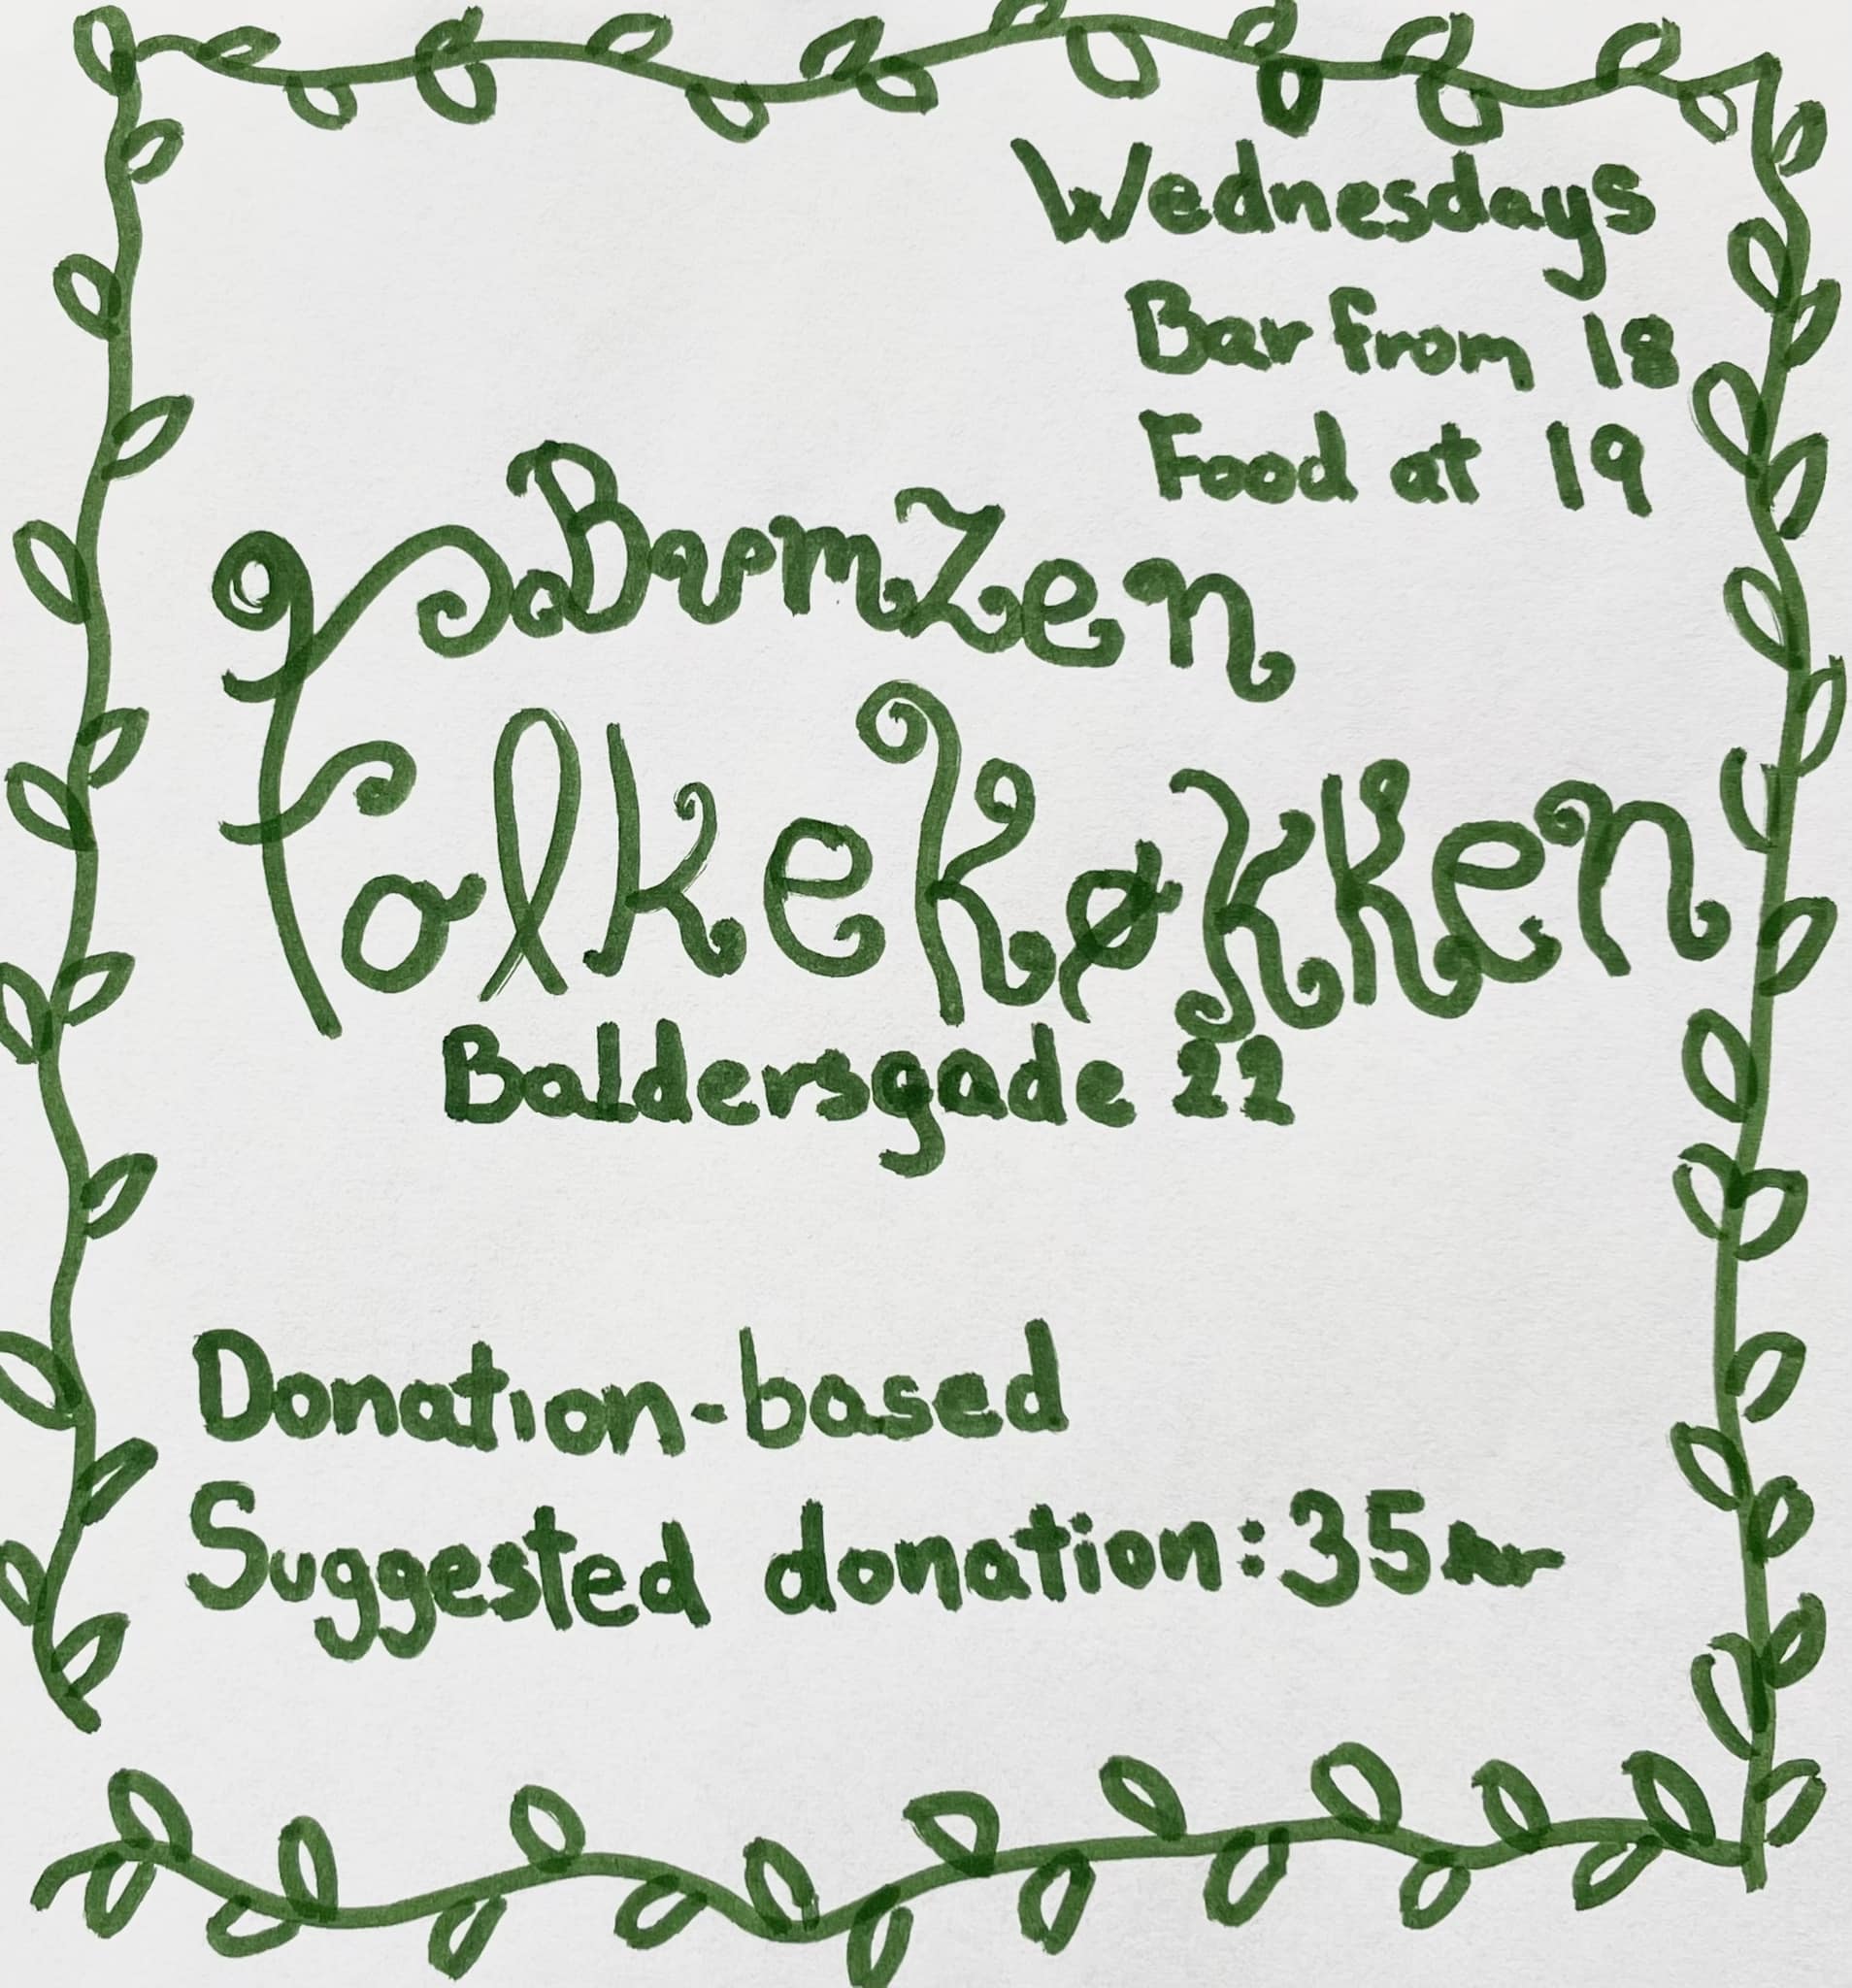 Wednesdays
Bar from 18
Food at 19
BumZen
FolkeKøkken
Baldersgade 22
Donation-based
Suggested donation: 35 kr